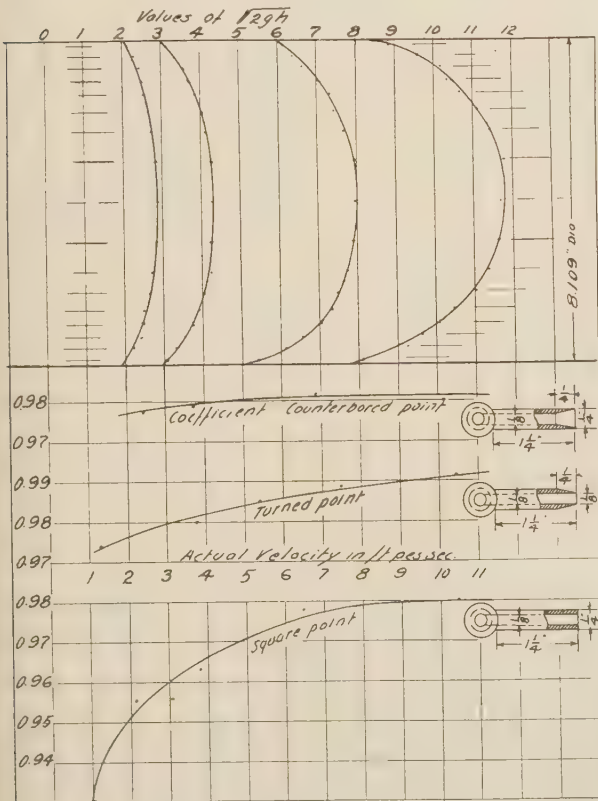 Values of √2gh
0 1 2 3 4 5 6 7 8 9 10 11 12
8.109" Dia
0.98
Coefficient Counterbored point
1/4
1/8
1/4
1 1/4"
0.97
0.99
Turned point
1/4
1/8
1/8
1 1/4"
0.98
0.97
Actual Velocity in ft per sec.
1 2 3 4 5 6 7 8 9 10 11
0.98
Square point
1/8
1/4
1 1/4"
0.97
0.96
0.95
0.94